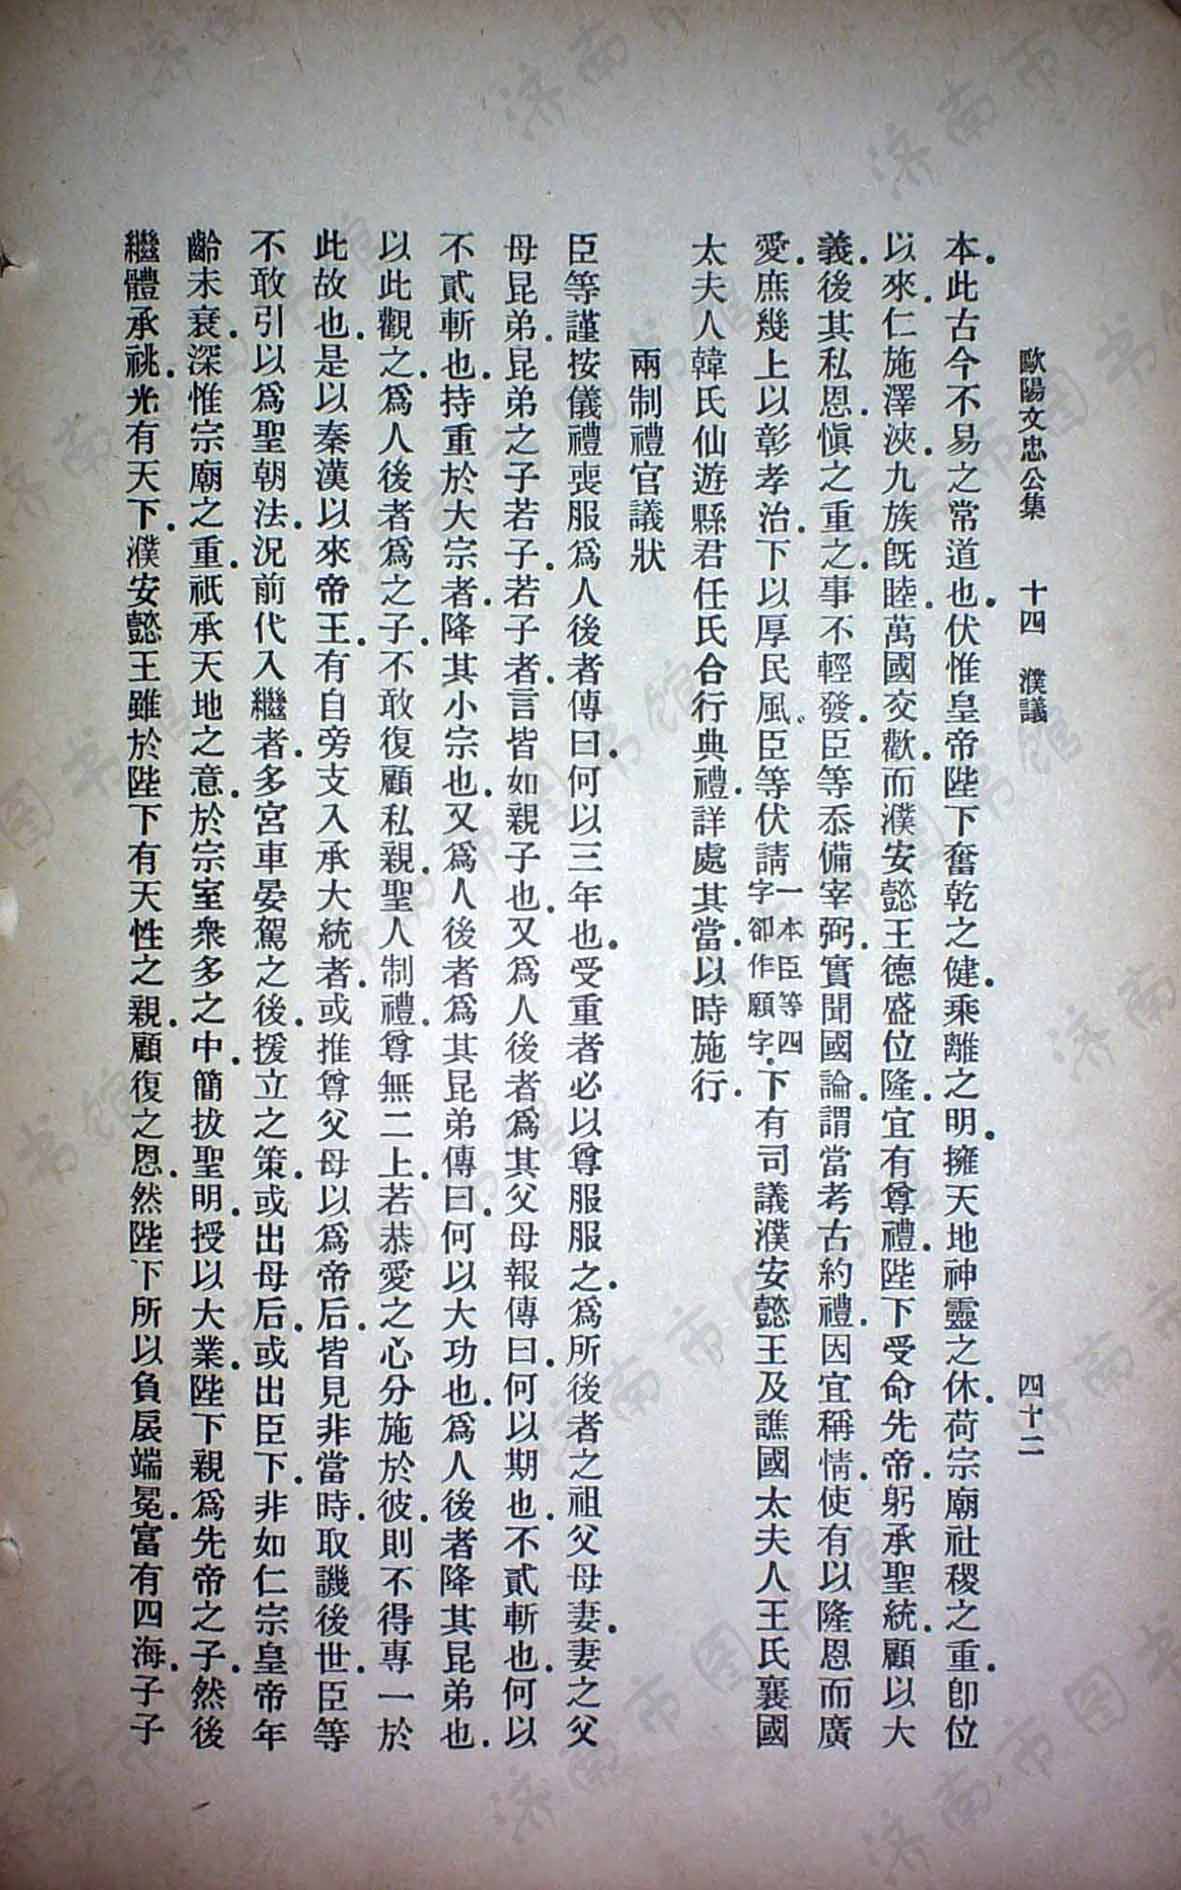 歐陽文忠公集　十四　濮議　四十二
本.此古今不易之常道也.伏惟皇帝陛下奮乾之健.乘離之明.擁天地神靈之休.荷宗廟社稷之重.卽位
以來.仁施澤浹.九族旣睦.萬國交歡.而濮安懿王德盛位隆.宜有尊禮.陛下受命先帝.躬承聖統.顧以大
義.後其私恩.愼之重之.事不輕發.臣等忝備宰弼.實聞國論.謂當考古約禮.因宜稱情.使有以隆恩而廣
愛.庶幾上以彰孝治.下以厚民風.臣等伏請一本臣等四字卻作願字.下有司議濮安懿王及譙國太夫人王氏襄國
太夫人韓氏仙遊縣君任氏合行典禮.詳處其當.以時施行.
兩制禮官議狀
臣等謹按儀禮喪服爲人後者傳曰.何以三年也.受重者必以尊服服之.爲所後者之祖父母妻.妻之父
母昆弟.昆弟之子若子.若子者.言皆如親子也.又爲人後者爲其父母報傳曰.何以期也.不貳斬也.何以
不貳斬也.持重於大宗者.降其小宗也.又爲人後者爲其昆弟傳曰.何以大功也.爲人後者降其昆弟也.
以此觀之.爲人後者爲之子.不敢復顧私親.聖人制禮.尊無二上.若恭愛之心分施於彼.則不得專一於
此故也.是以秦漢以來帝王.有自旁支入承大統者.或推尊父母以爲帝后.皆見非當時.取譏後世.臣等
不敢引以爲聖朝法.況前代入繼者.多宮車晏駕之後.援立之策.或出母后.或出臣下.非如仁宗皇帝年
齡未衰.深惟宗廟之重.祇承天地之意.於宗室衆多之中.簡拔聖明.授以大業.陛下親爲先帝之子.然後
繼體承祧.光有天下.濮安懿王雖於陛下有天性之親.顧復之恩.然陛下所以負扆端冕.富有四海.子子
济南市图书馆